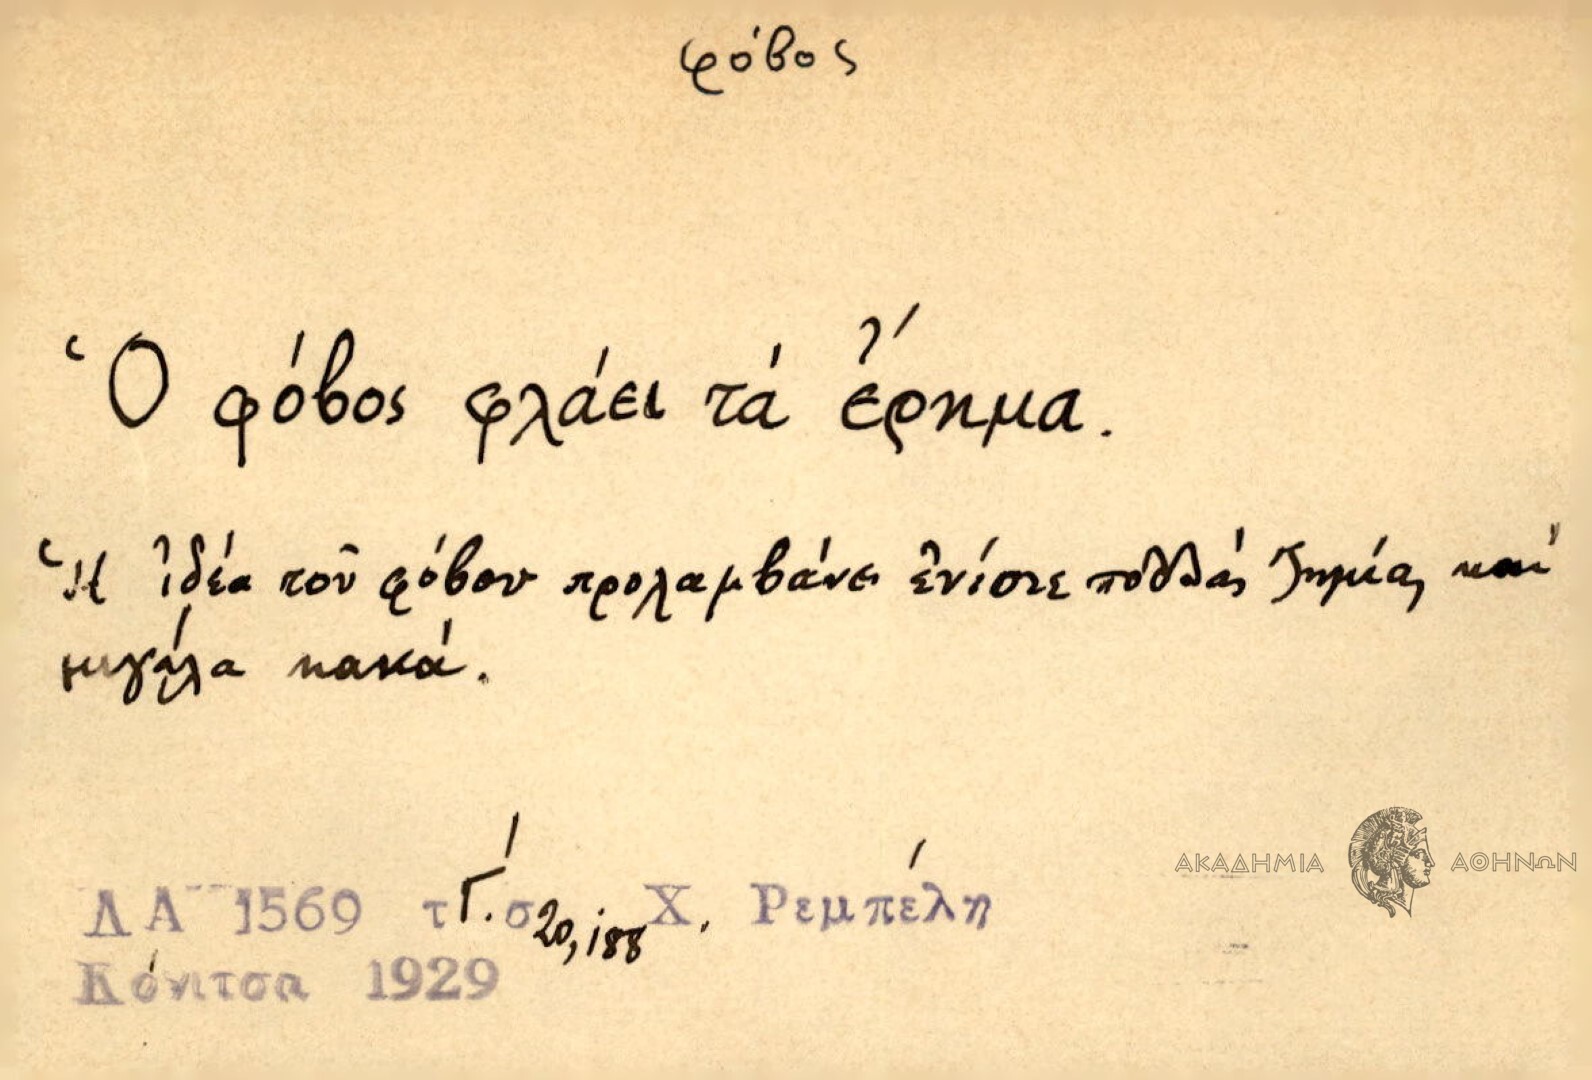 φόβος
Ὁ φόβος φλάει τά ἔρημα.
Ἡ ἰδέα τοῦ φόβου προλαμβάνει ἐνίοτε πολλάς ζημίας καί
μεγάλα κακά.
ΛΑ 1569 τ Γ΄. σ 20, 188 Χ. Ρεμπέλη
Κόνιτσα 1929
ΑΚΑΔΗΜΙΑ ΑΘΗΝΩΝ